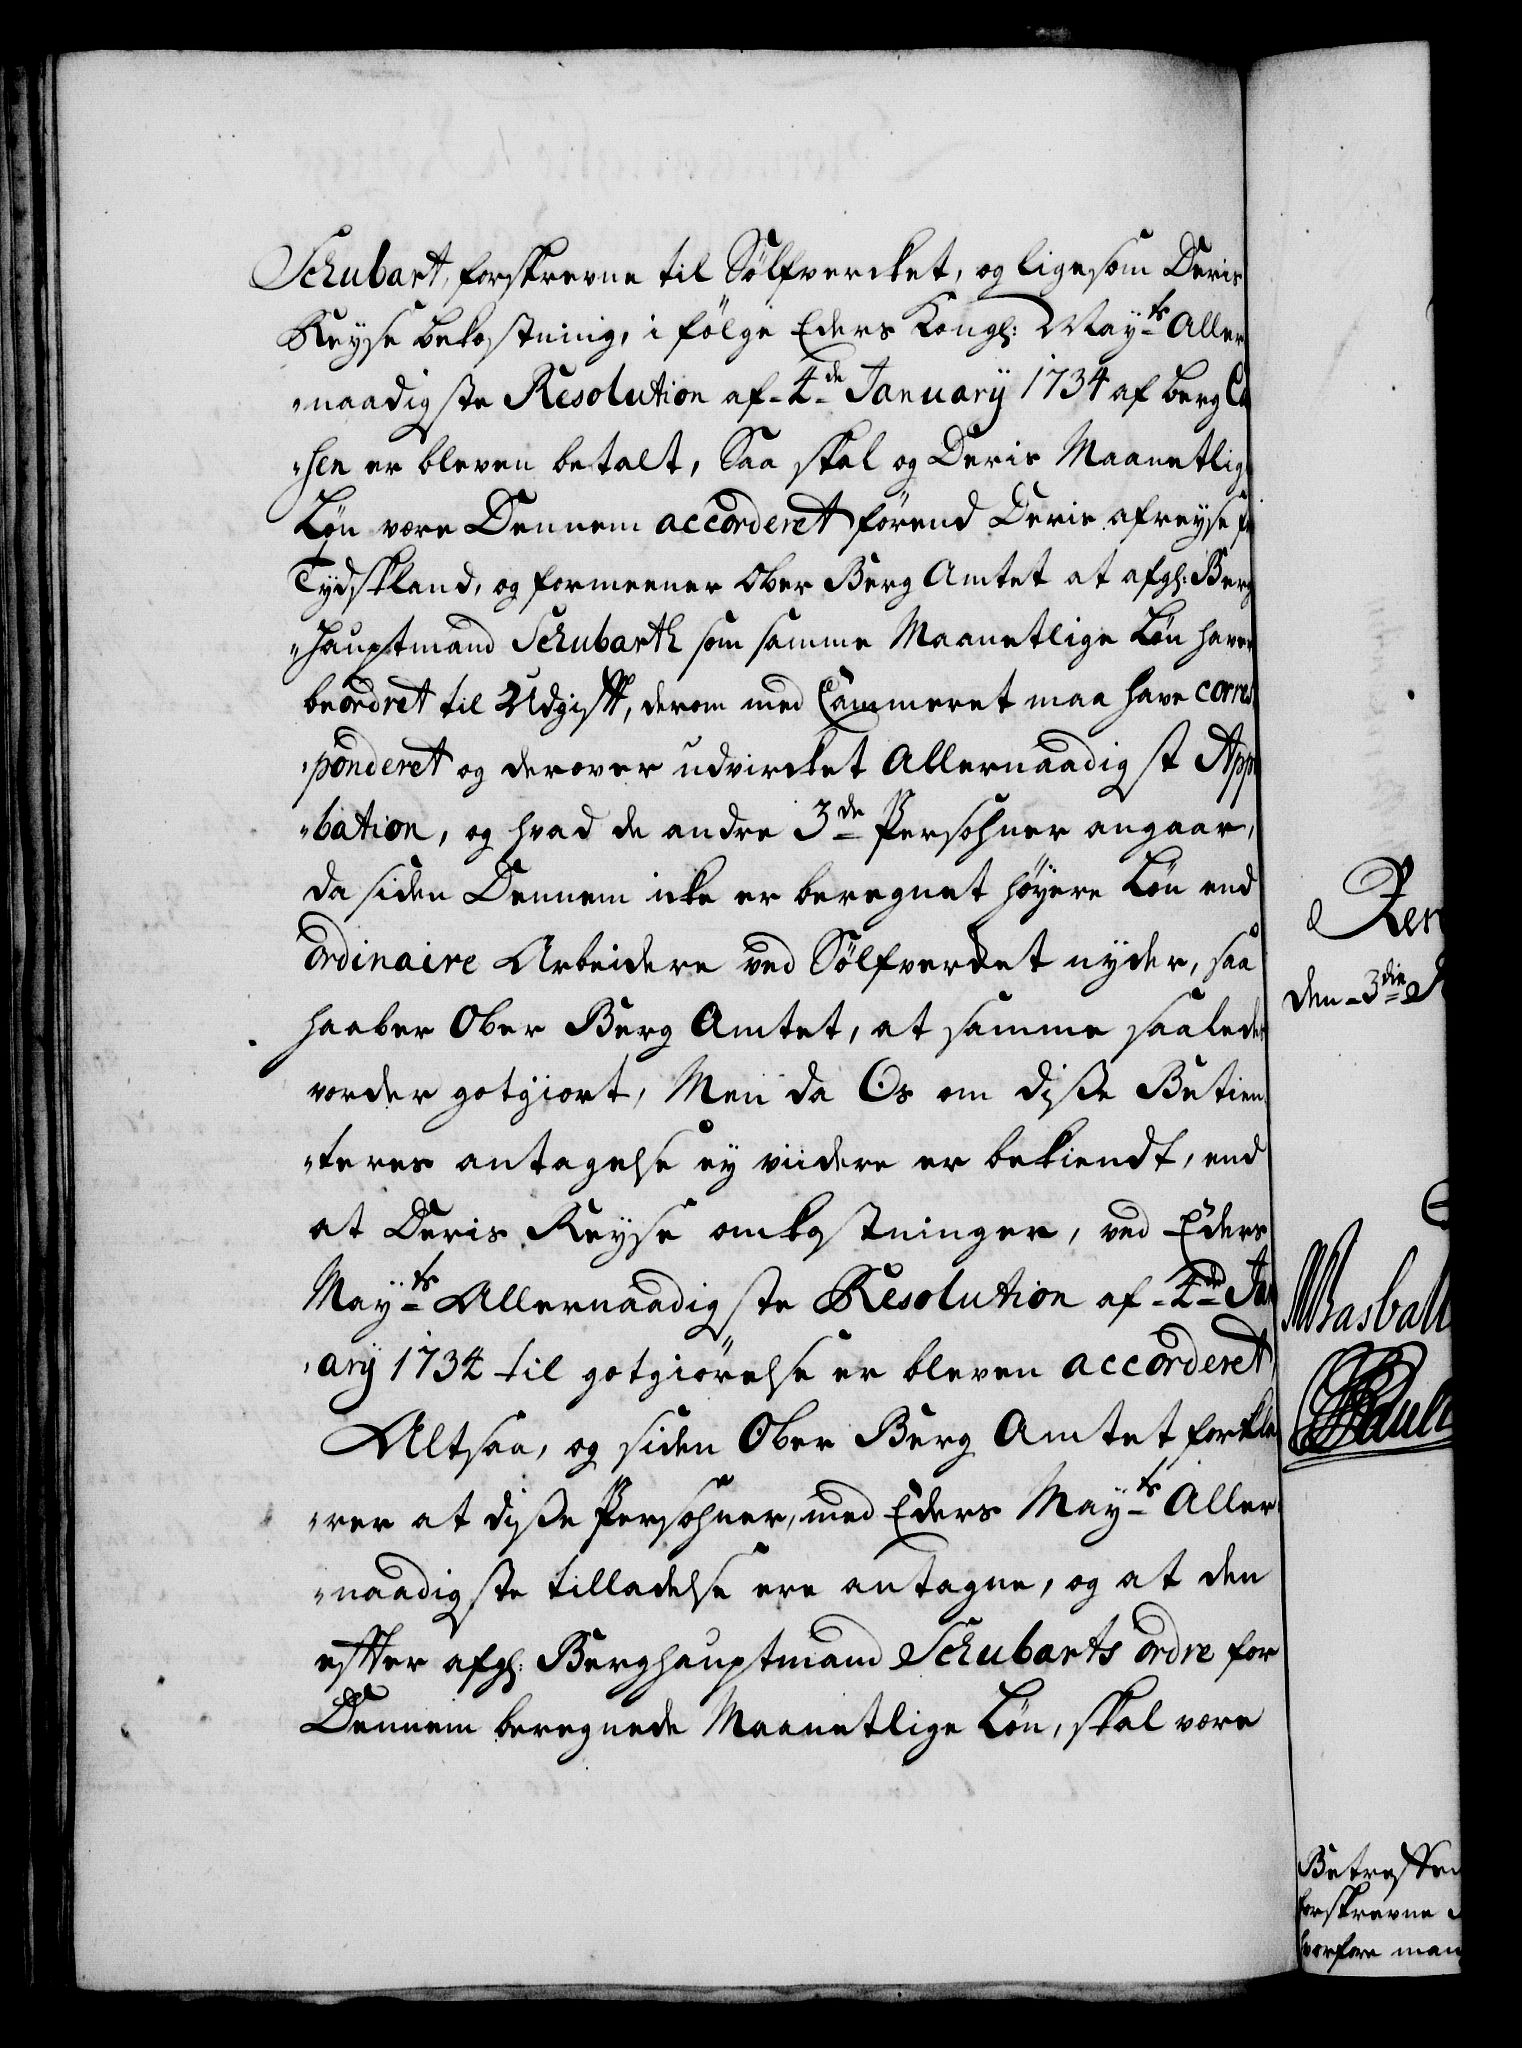 Schubart, forskrevne til Sölfvercket, og ligesom Deris
Reyse bekostning, i fölge Eders Kongl: May^ts Aller
"naadigste Resolution af 4^de January 1734 af berg Ca
"hen er bleven betalt, Saa skal og Deris Maanetlige
Løn være Dennem accorderet förend Deris afreyse fr
Tydskland, og formeener Ober Berg Amtet at afgl: Berg
"hauptmand Schubarth som samme Maanetlige Løn haver
beordret til Udgift, derom med Cammeret maa have corres
"ponderet og derover udvircket Allernaadigst App
"bation, og hvad de andre 3^de Persohner angaar,
da siden Dennem icke er beregnet höyere Løn end
ordinaire Arbeidere ved Sölfvercket nyder, saa
haaber Ober Berg Amtet, at samme saaledes
vorder gotgiort, Men da Os om disse Betien
"teres antagelse ey viidere er bekiendt, end
at Deris Reyse omkostninger, ved Eders
May^ts Allernaadigste Resolution af 4^de Jan
"ary 1734 til gotgiörelse er bleven accorderet,
Altsaa, og siden Ober Berg Amtet forkla
"rer at disse Persohner, med Eders May^ts Aller
"naadigste tilladelse ere antagne, og at den
effter afgl: Berghauptmand Schubarts ordre for
Dennem beregnede Maanetlige Løn, skal være
Ren
den 3^die
Wasball
Paul
Betreffen
forskrevne
hvorfore man